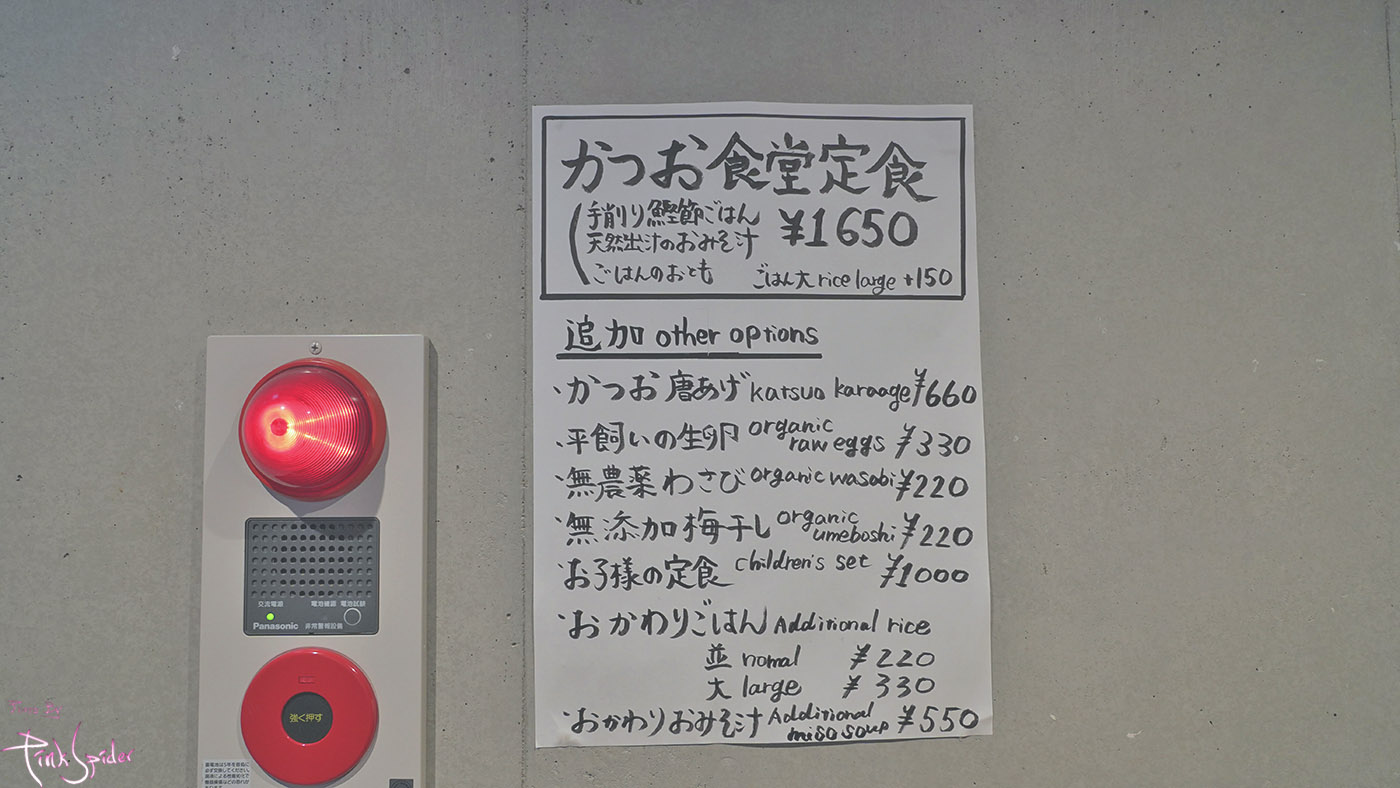 かつお食堂定食
手削り鰹節ごはん
天然出汁のおみそ汁
ごはんのおとも
¥1650
ごはん大 rice large +150
追加 other options
・かつお唐あげ katsuo karaage ¥660
・平飼いの生卵 organic raw eggs ¥330
・無農薬わさび organic wasabi ¥220
・無添加梅干し organic umeboshi ¥220
・お子様の定食 children's set ¥1000
・おかわりごはん Additional rice
並 nomal ¥220
大 large ¥330
・おかわりおみそ汁 Additional miso soup ¥550
交流電源 電池確認 電池試験
Panasonic 非常警報設備
強く押す
Pink Spider